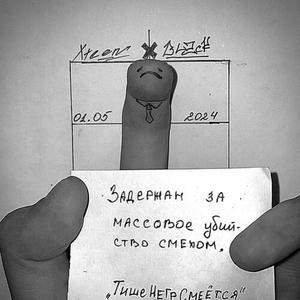 X
01.05 2024
ЗАДЕРЖАН ЗА
МАССОВОЕ убий-
СТВО СМЕХОМ.
„Тише НЕГР СМЕЁТСЯ"